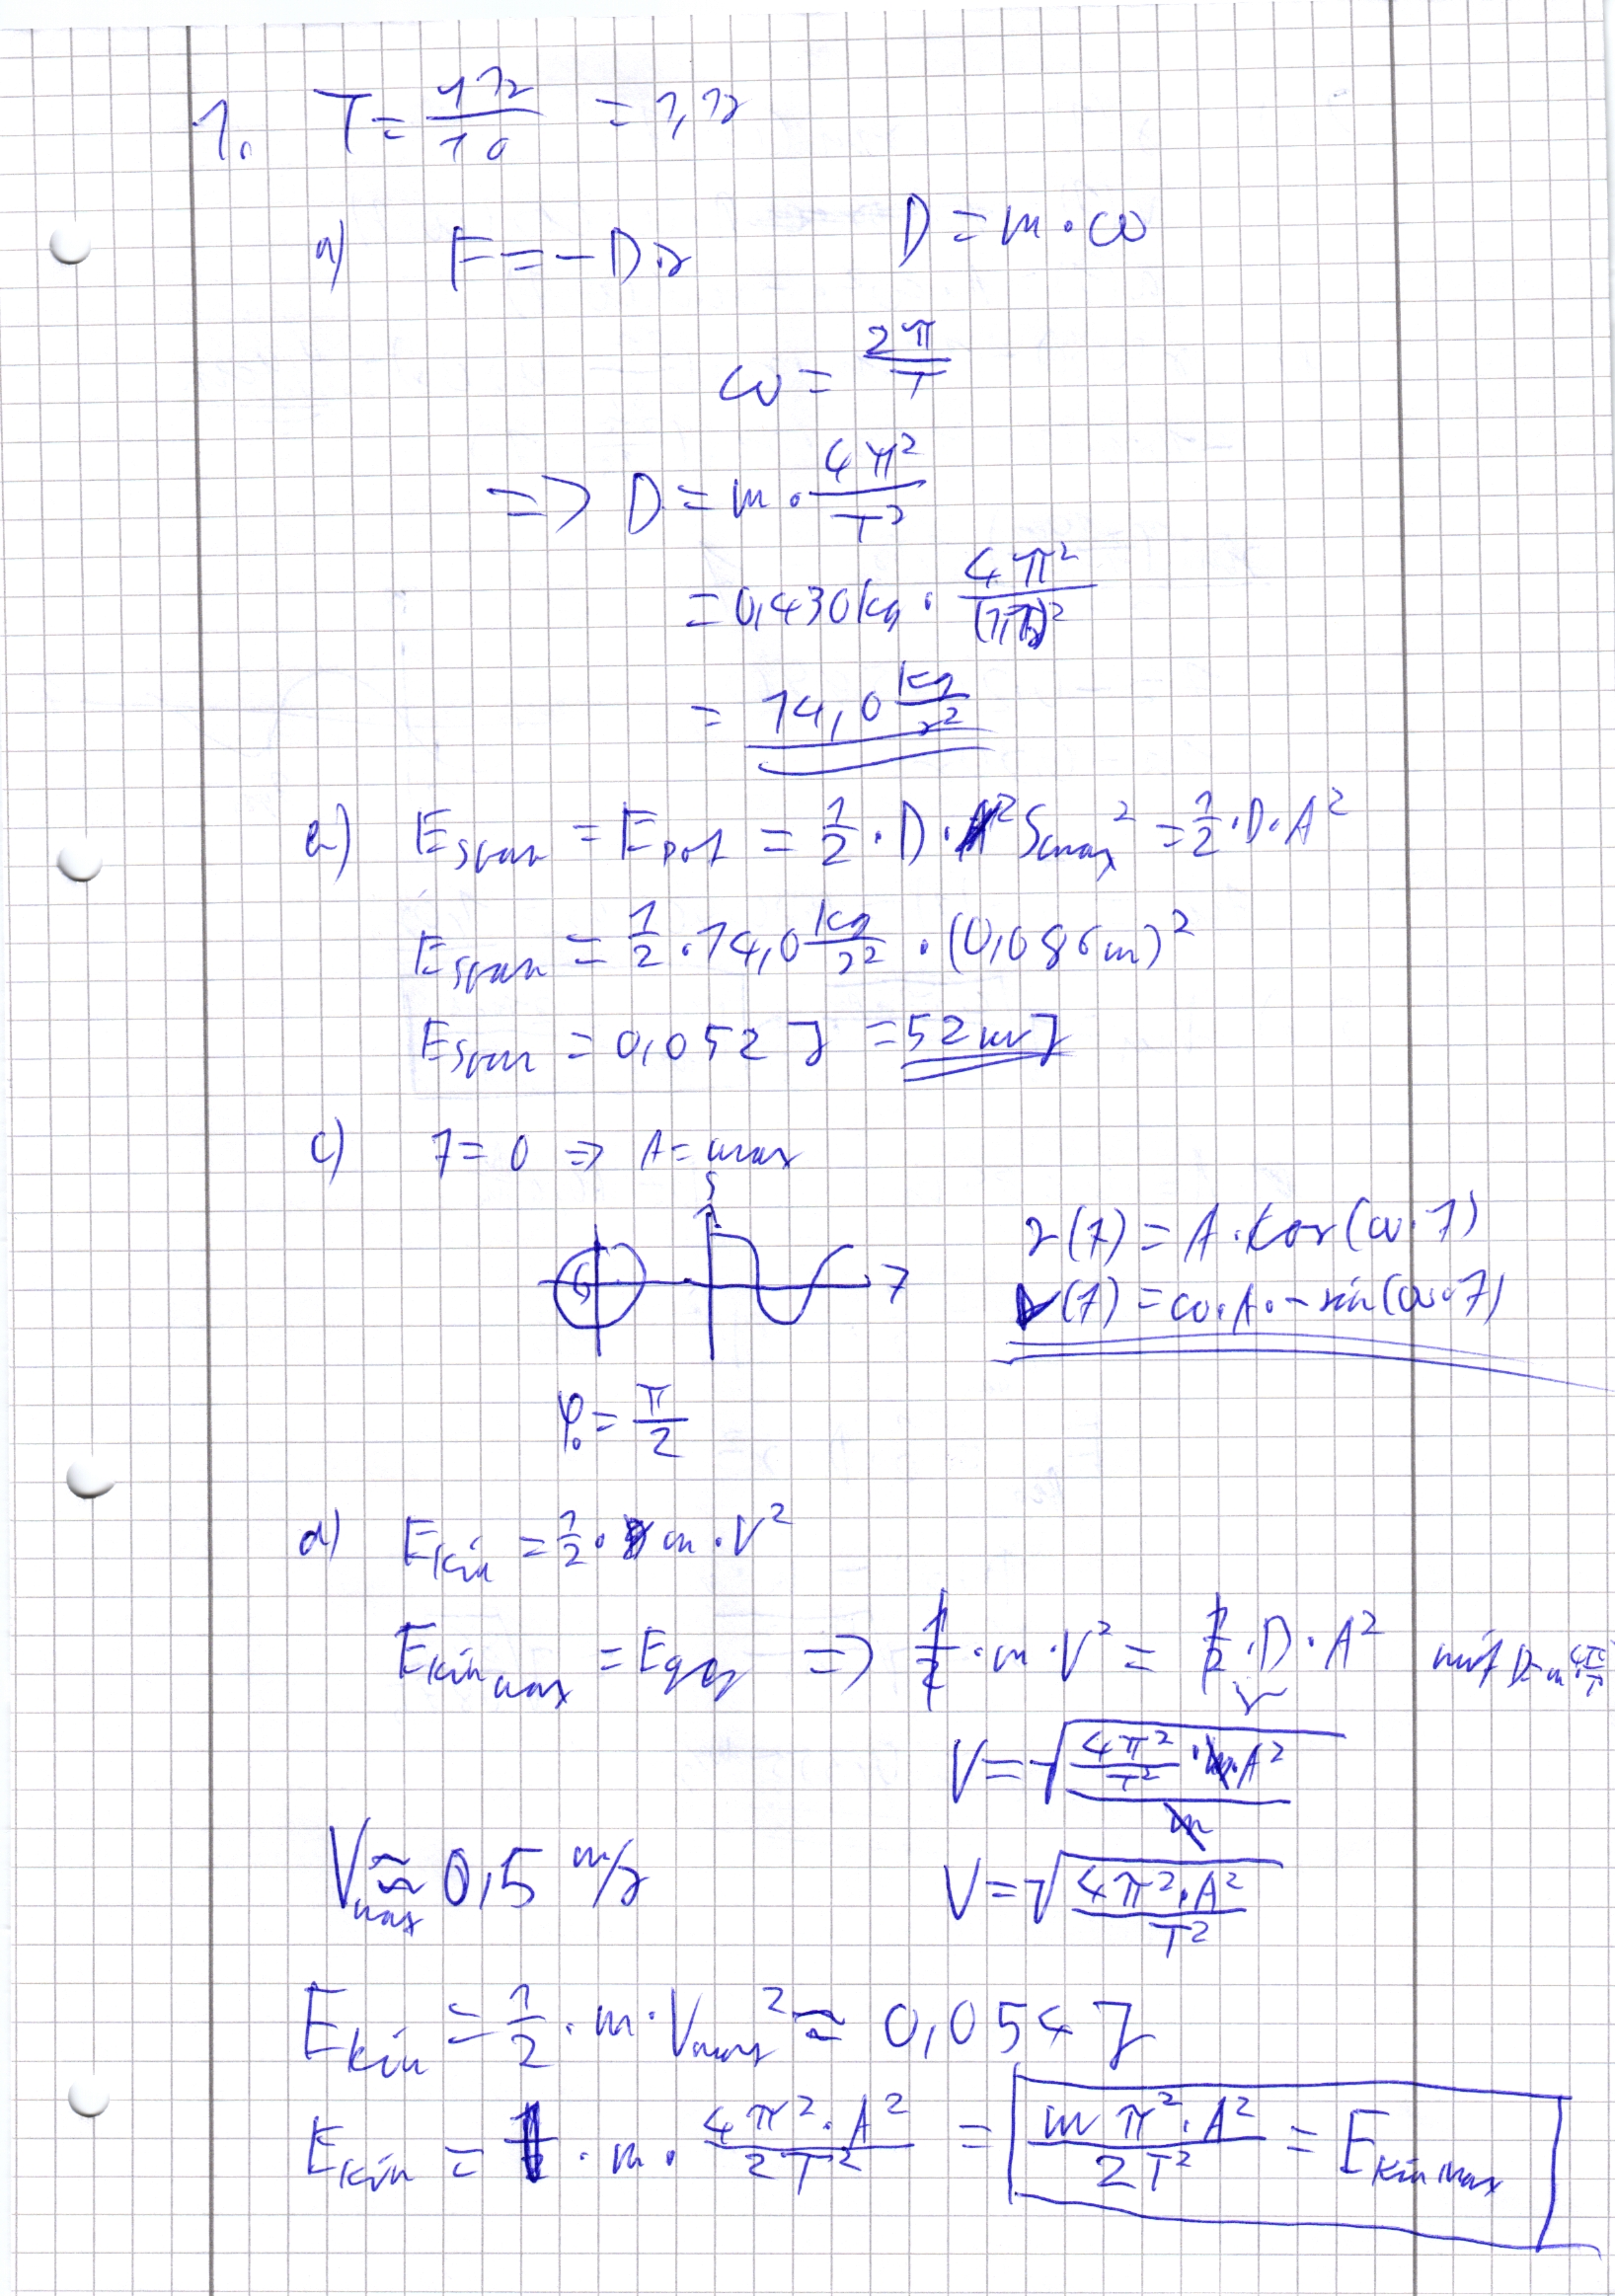 1. T = 11s/10 = 1,1s
a) F = -D·s D = m·ω
ω = 2π/T
=> D = m · 4π²/T²
= 0,430kg · 4π²/(1,1s)²
= 14,0 kg/s²
b) E_span = E_pot = 1/2 · D · S_max² = 1/2 · D · A²
E_span = 1/2 · 14,0 kg/s² · (0,086m)²
E_span = 0,052 J = 52mJ
c) t = 0 => A = max
s
t
s(t) = A · cos(ω·t)
v(t) = ω·A· - sin(ω·t)
φ₀ = π/2
d) E_kin = 1/2 · m · V²
E_kin max = E_ges => 1/2 · m · V² = 1/2 · D · A² mit D = m 4π²/T²
V = √((4π²/T² · m · A²)/m)
V_max ≈ 0,5 m/s
V = √(4π²·A²/T²)
E_kin = 1/2 · m · V_max² ≈ 0,054 J
E_kin = · m · 4π²·A²/2T² = mπ²·A²/2T² = E_kin max